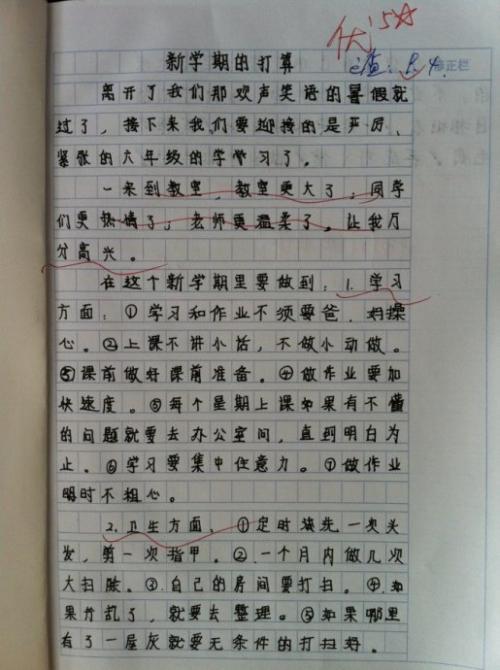 优 5☆
修正栏
新学期的打算
离开了我们那欢声笑语的暑假就
过了，接下来我们要迎接的是严厉、
紧张的六年级的学习了。
一来到教室，教室更大了，同学
们更热情了，老师更温柔了。让我万
分高兴。
在这个新学期里要做到：1.学习
方面：①学习和作业不须要爸、妈操
心。②上课不讲小话，不做小动做。
③课前做好课前准备。④做作业要加
快速度。⑤每个星期上课如果有不懂
的问题就要去办公室问，直到明白为
止。⑥学习要集中住意力。⑦做作业
时不粗心。
2.卫生方面，①定时洗一次头
发，剪一次指甲。②一个月内做几次
大扫除。③自己的房间要打扫。④如
果什乱了，就要去整理。⑤如果哪里
有了一屋灰就要无条件的打扫好。